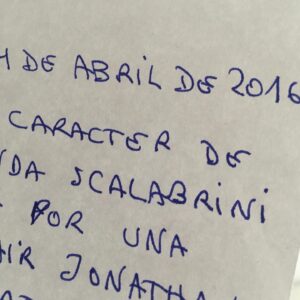 DE ABRIL DE 2016
CARACTER DE
SCALABRINI
POR UNA
JONATHA